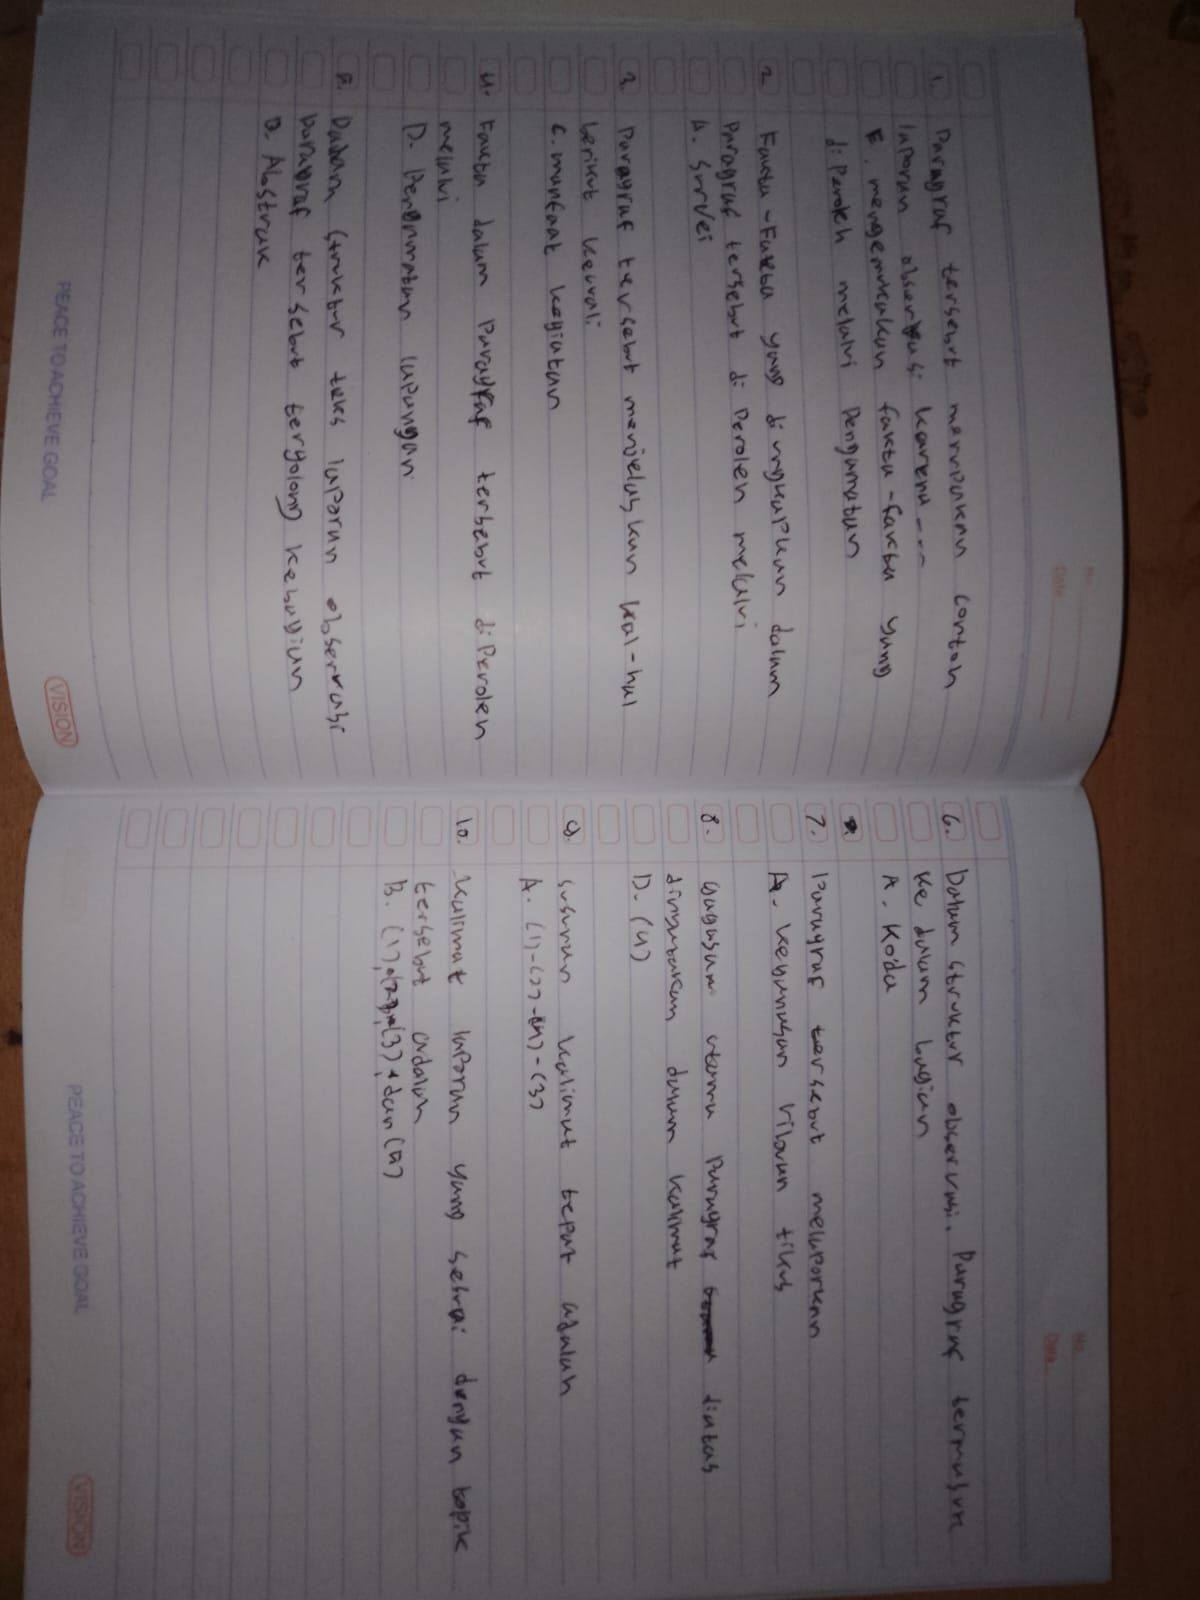 No.
Date
1. Paragraf tersebut merupakan contoh
laporan observasi karena ---
E. mengemukakan fakta-fakta yang
diperoleh melalui pengamatan
2. Fakta-Fakta yang diungkapkan dalam
Paragraf tersebut diperoleh melalui
A. Survei
3. Paragraf tersebut menjelaskan hal-hal
berikut kecuali
C. manfaat kegiatan
4. Fakta dalam Paragraf tersebut diperoleh
melalui
D. Pengamatan lapangan
5. Dalam struktur teks laporan observasi
paragraf tersebut tergolong kebagian
D. Abstrak
PEACE TO ACHIEVE GOAL
VISION
No.
Date
6. Dalam struktur observasi. Paragraf termasuk
ke dalam bagian
A. Koda
7. Paragraf tersebut melaporkan
A. keganasan ribuan tikus
8. Gagasan utama Paragraf diatas
dinyatakan dalam kalimat
D. (4)
9. susunan kalimat tepat adalah
A. (1)-(2)-(4)-(3)
10. Kalimat laporan yang sesuai dengan topik
tersebut adalah
B. (1), (2), (3), dan (5)
PEACE TO ACHIEVE GOAL
VISION